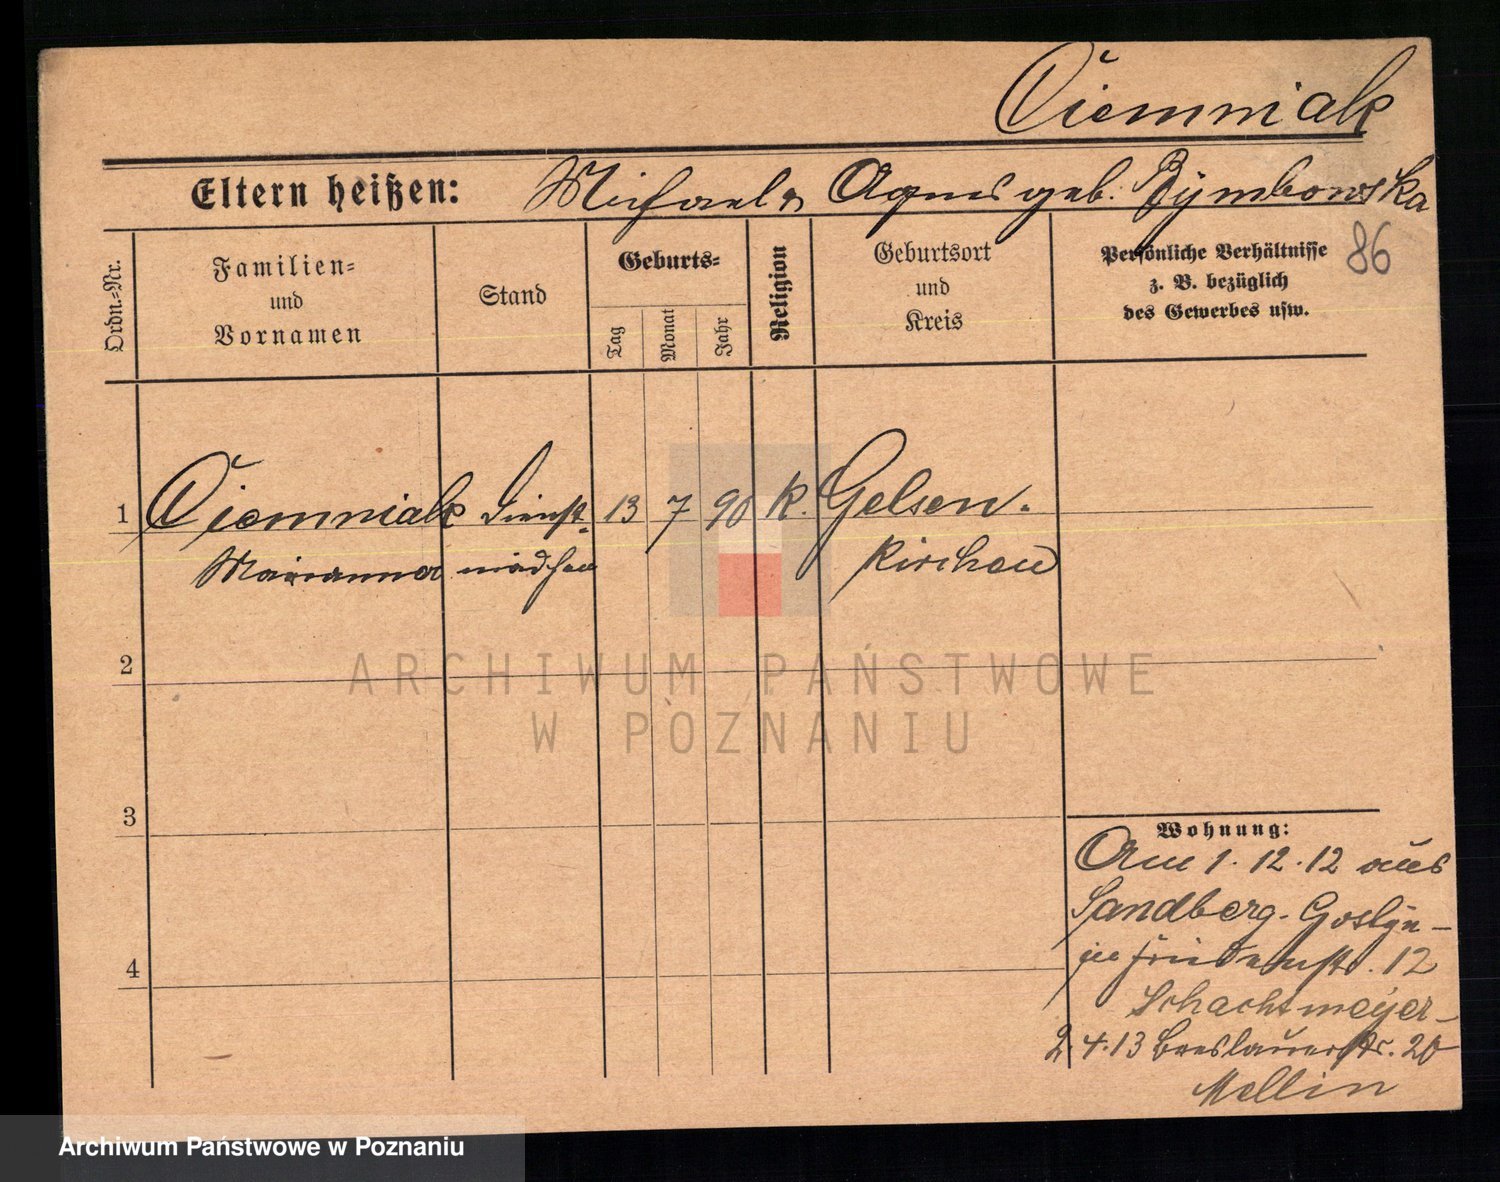 Ciemniak
Eltern heißen: Michael & Agnes geb. Dymbowska
86
Ordn.-Nr.
Familien-
und
Vornamen
Stand
Geburts-
Tag
Monat
Jahr
Religion
Geburtsort
und
Kreis
Persönliche Verhältnisse
z. B. bezüglich
des Gewerbes usw.
1 Ciemniak Dienst- 13 7 90 K. Gelsen-
Marianna mädchen kirchen
2
3
4
Wohnung:
Am 1.12.12 aus
Sandberg-Gostyn-
in 12
Schachtmeyer-
2.4.13 Breslauerstr. 20
Mellin
ARCHIWUM PAŃSTWOWE
W POZNANIU
Archiwum Państwowe w Poznaniu